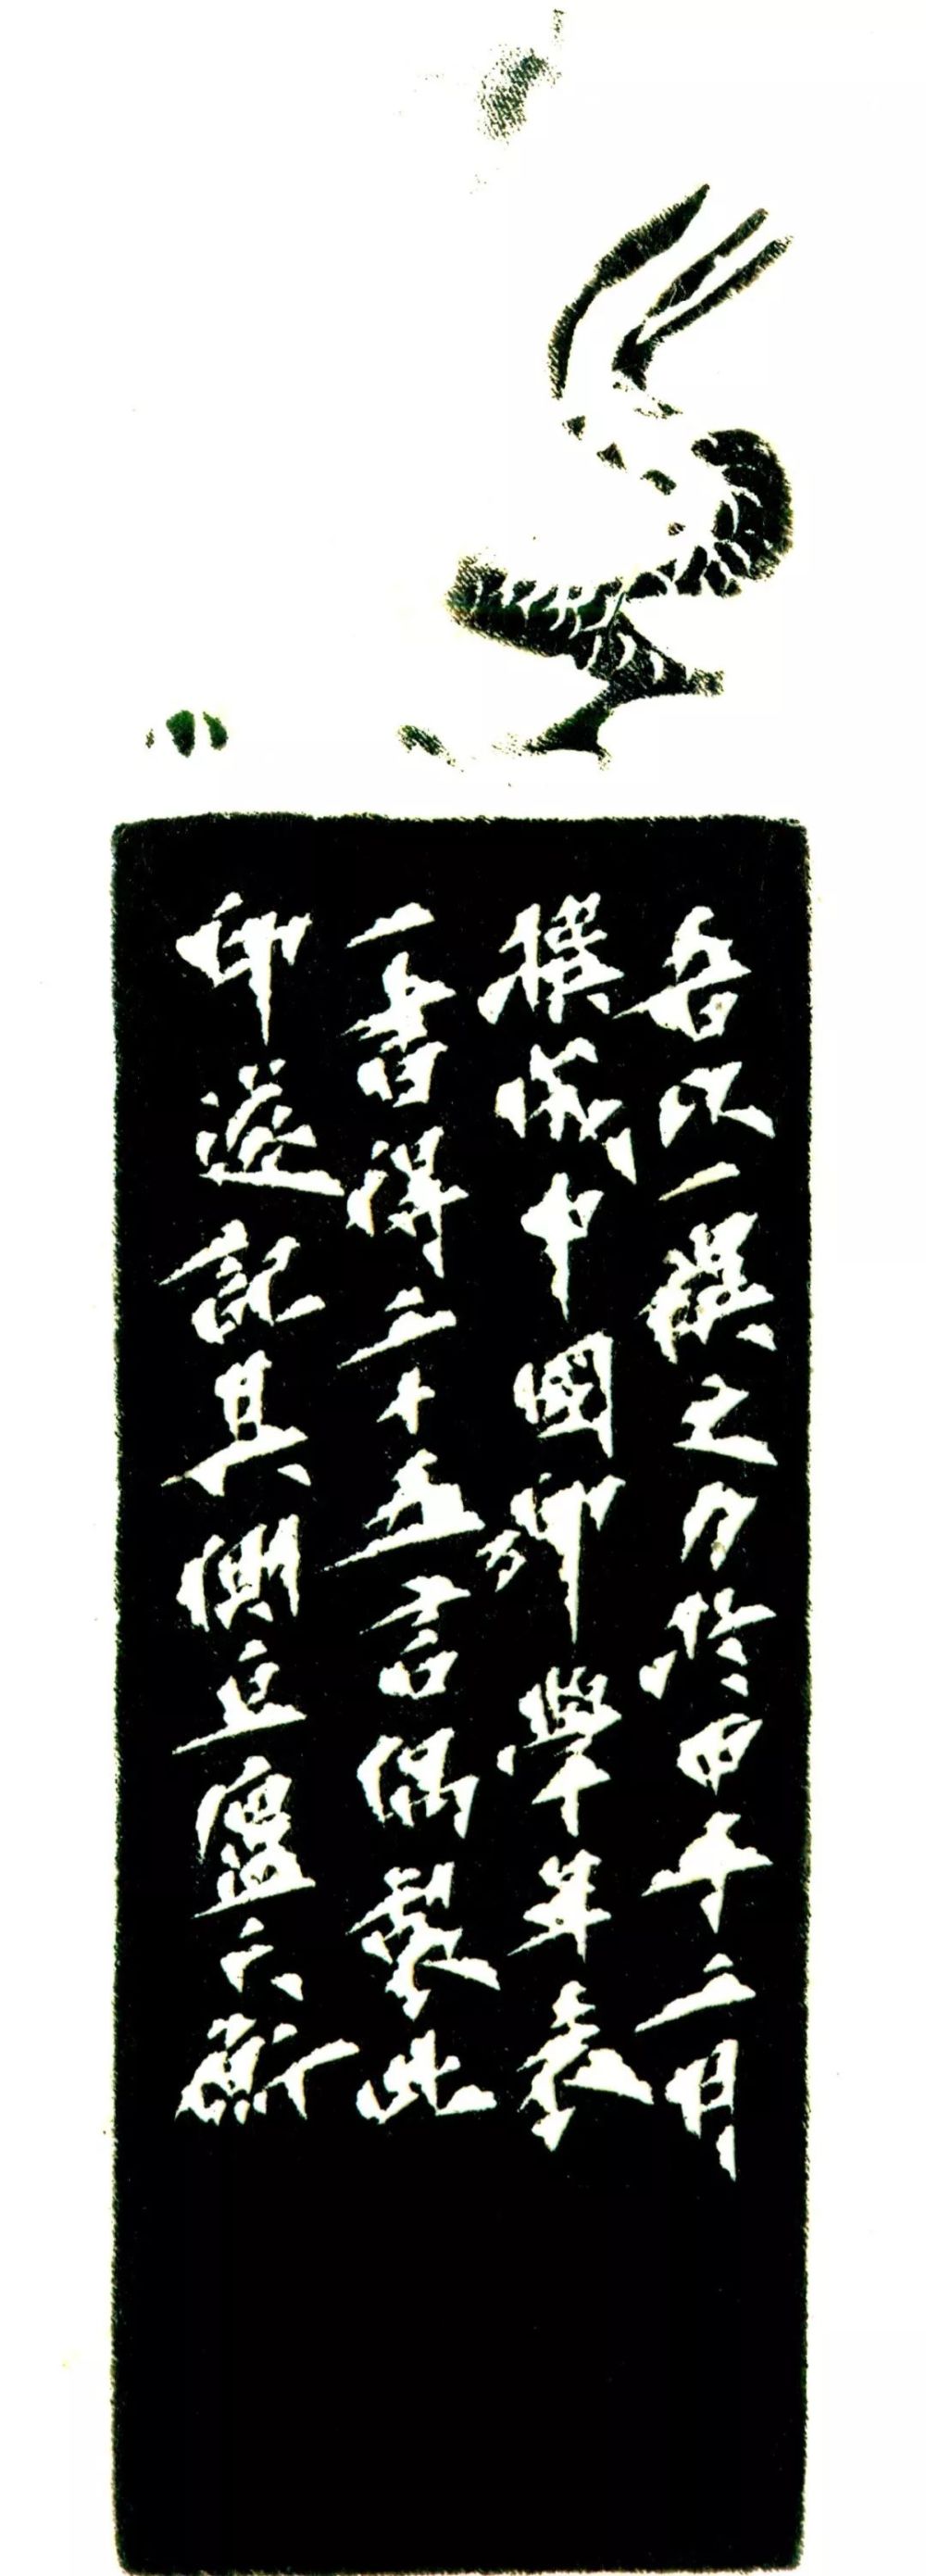 吾以一之力於甲子二月
撰成中國印學年表
一書得二十五万言偶製此
印遂記其側豆廬天衡